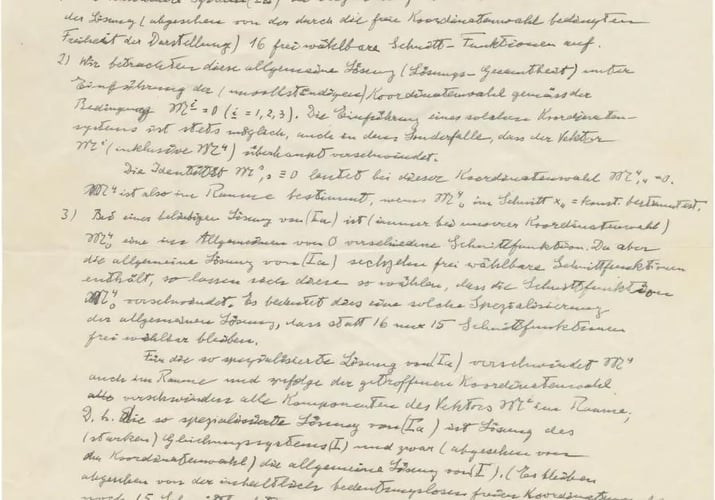 der Lösung (abgesehen von der durch die freie Koordinatenwahl bedingten
Freiheit der Darstellung) 16 frei wählbare Schnitt-Funktionen auf.
2) Wir betrachten diese allgemeine Lösung (Lösungs-Gesamtheit) unter
Einführung der (unvollständigen) Koordinatenwahl gemäss der
Bedingung 𝔐ⁱ = 0 (i = 1, 2, 3). Die Einführung eines solchen Koordinaten-
systems ist stets möglich, auch in dem Sonderfalle, dass der Vektor
𝔐ˢ (inklusive 𝔐⁴) überhaupt verschwindet.
Die Identität 𝔐ˢ,ₛ ≡ 0 lautet bei dieser Koordinatenwahl 𝔐⁴,₄ = 0.
𝔐⁴ ist also im Raume bestimmt, wenn 𝔐⁴₀ im Schnitt x₄ = konst. bestimmt ist.
3) Bei einer beliebigen Lösung von (Ia) ist (immer bei unserer Koordinatenwahl)
𝔐⁴₀ eine im Allgemeinen von 0 verschiedene Schnittfunktion. Da aber
die allgemeine Lösung von (Ia) sechzehn frei wählbare Schnittfunktionen
enthält, so lassen sich diese so wählen, dass die Schnittfunktion
𝔐⁴₀ verschwindet. Es bedeutet dies eine solche Spezialisierung
der allgemeinen Lösung, dass statt 16 nur 15 Schnittfunktionen
frei wählbar bleiben.
Für die so spezialisierte Lösung von (Ia) verschwindet 𝔐⁴
auch im Raume und zufolge der getroffenen Koordinatenwahl
alle verschwinden alle Komponenten des Vektors 𝔐ˢ im Raume,
D. h. die so spezialisierte Lösung von (Ia) ist Lösung des
(starken) Gleichungssystems (I) und zwar (abgesehen von
der Koordinatenwahl) die allgemeine Lösung von (I). (Es bleiben
abgesehen von der inhaltlich bedeutungslosen freien Koordinatenwahl
noch 15